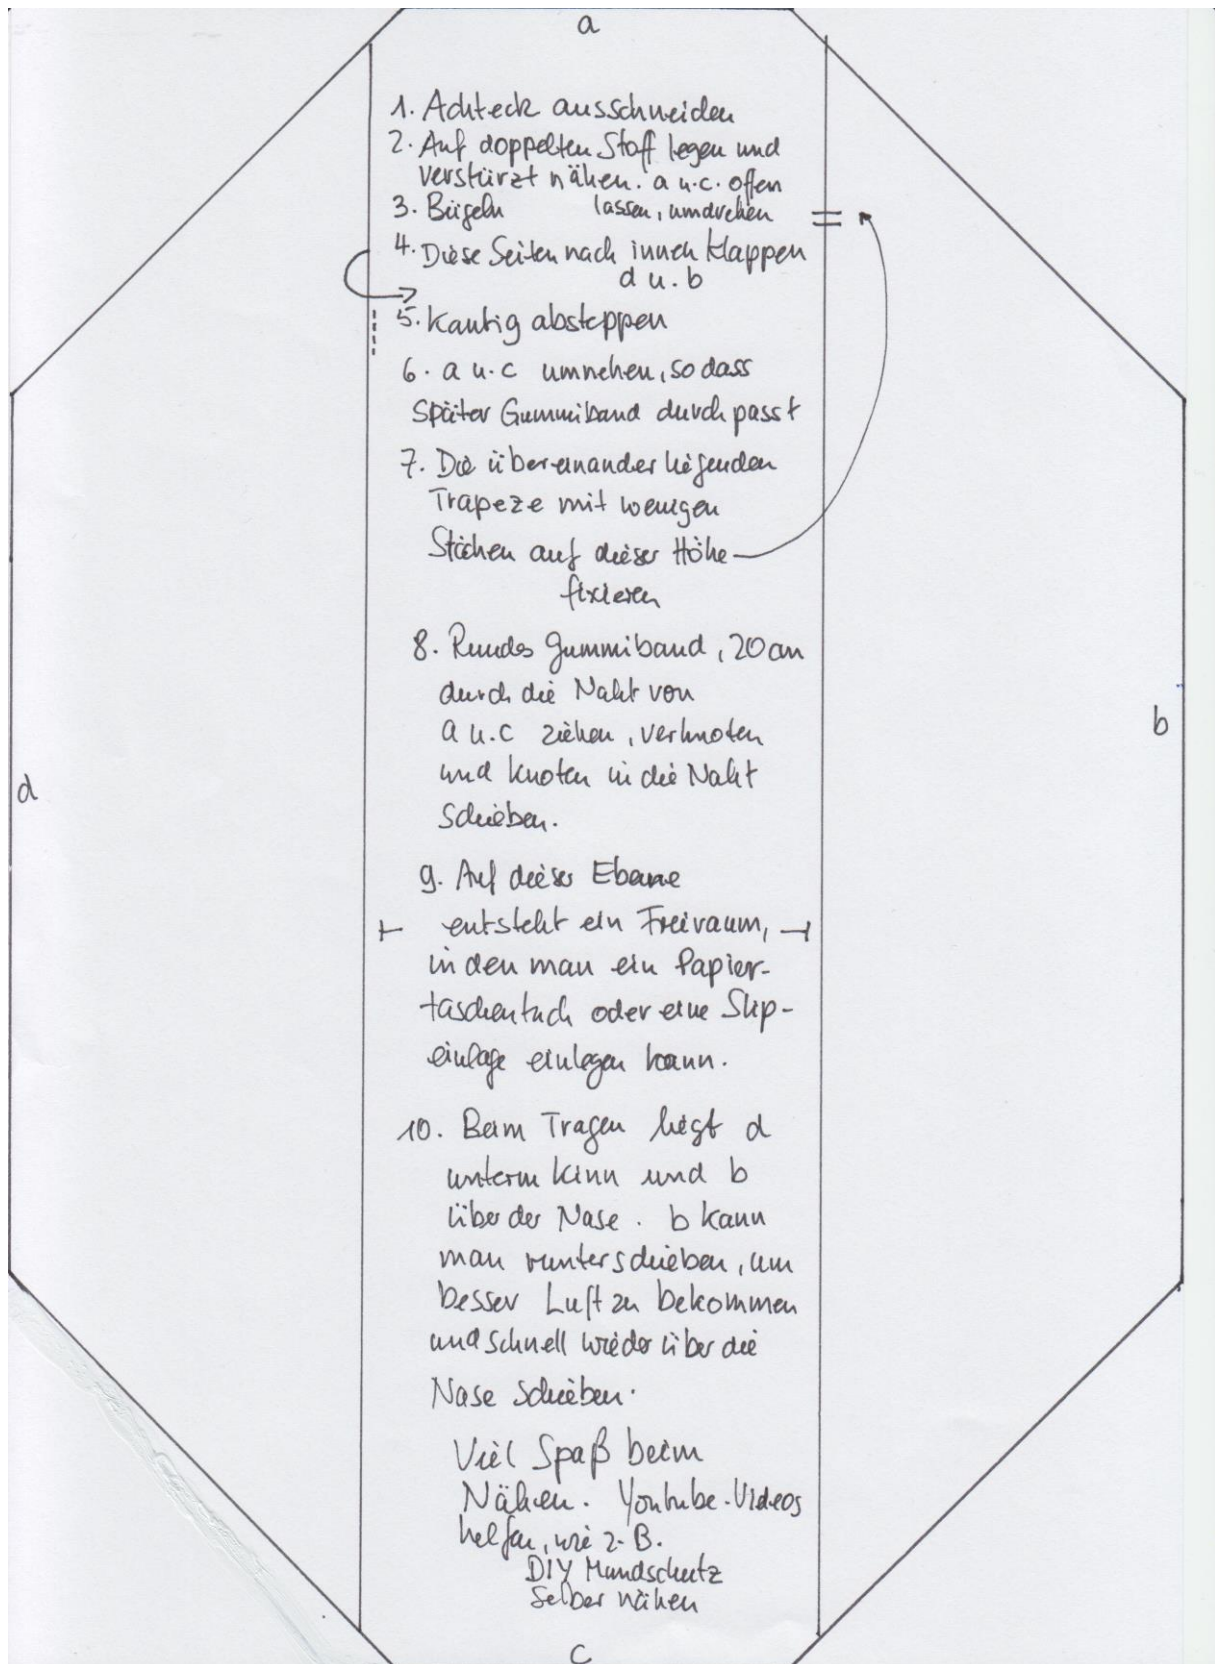 a
1. Achteck ausschneiden
2. Auf doppelten Stoff legen und
verstürzt nähen. a u.c. offen
3. Bügeln lassen, umdrehen
4. Diese Seiten nach innen klappen
d u. b
5. Kantig absteppen
6. a u.c umnehen, so dass
später Gummiband durch passt
7. Die übereinander liegenden
Trapeze mit wenigen
Stichen auf dieser Höhe
fixieren
8. Rundes Gummiband, 20 cm
durch die Naht von
a u.c ziehen, verknoten
und Knoten in die Naht
schieben.
b
d
9. Auf dieser Ebene
entsteht ein Freiraum,
in den man ein Papier-
taschentuch oder eine Slip-
einlage einlegen kann.
10. Beim Tragen liegt d
unterm Kinn und b
über der Nase. b kann
man runterschieben, um
besser Luft zu bekommen
und schnell wieder über die
Nase schieben.
Viel Spaß beim
Nähen. Youtube-Videos
helfen, wie z.B.
DIY Mundschutz
Selber nähen
c